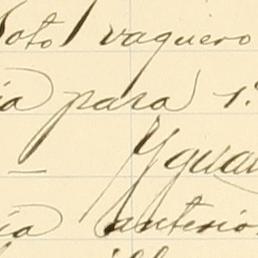 Soto vaquero
ia para 1.
– Ygua
ia anterio